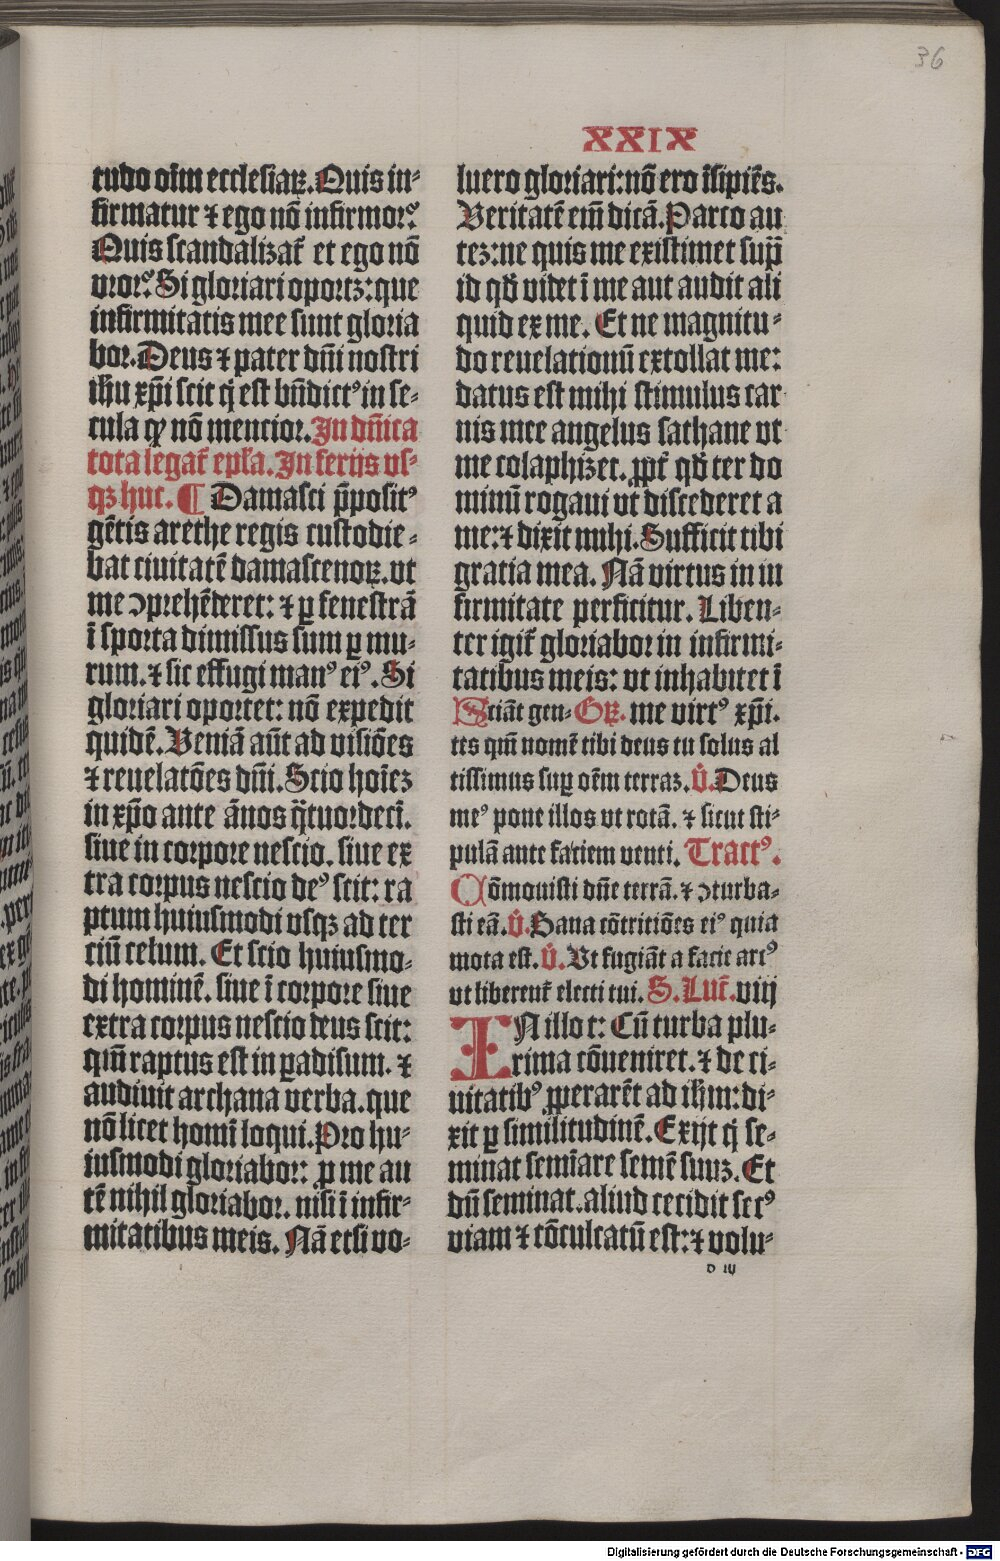 36
XXIX
tudo oīm ecclesiaꝝ. Quis in⸗
firmatur ⁊ ego nō infirmorꝰ
Quis scandalizat̄ et ego nō
vrorꝰ. Si gloriari oportꝫ: que
infirmitatis mee sunt gloria
bor. Deus ⁊ pater dn̄i nostri
ihū xp̄i scit q̇ est bn̄dictꝰ in se⸗
cula ꝙ nō mencior. In dn̄ica
tota legat̄ epl̄a. In ferijs vs⸗
qꝫ huc. ¶ Damasci p̄positꝰ
gētis arethe regis custodie⸗
bat ciuitatē damascenoꝝ. vt
me ↄprehēderet: ⁊ ꝑ fenestrā
ī sporta dimissus sum ꝑ mu⸗
rum. ⁊ sic effugi manꝰ eiꝰ. Si
gloriari oportet: nō expedit
quidē. Veniā aūt ad visiōes
⁊ reuelatōes dn̄i. Scio hoīeꝫ
in xp̄o ante ānos q̈tuordecī.
siue in corpore nescio. siue ex
tra corpus nescio deꝰ scit: ra
ptum huiusmodi vsqꝫ ad ter
ciū celum. Et scio huiusmo⸗
di hominē. siue ī corpore siue
extra corpus nescio deus scit:
qm̄ raptus est in ꝑadisum. ⁊
audiuit archana verba. que
nō licet homī loqui. Pro hu⸗
iusmodi gloriabor: ꝓ me au
tē nihil gloriabor. nisi ī infir⸗
mitatibus meis. Nā etsi vo⸗
luero gloriari: nō ero īsipiēs.
Veritatē em̄ dicā. Parco au
teꝫ: ne quis me existimet sup̄
id qd̄ videt ī me aut audit ali
quid ex me. Et ne magnitu⸗
do reuelationū extollat me:
datus est mihi stimulus car
nis mee angelus sathane vt
me colaphizet. ꝓpt̄ qd̄ ter do
minū rogaui vt discederet a
me: ⁊ dixit mihi. Sufficit tibi
gratia mea. Nā virtus in in
firmitate perficitur. Liben⸗
ter igit̄ gloriabor in infirmi⸗
tatibus meis: vt inhabitet ī
Sciāt gen⸗ Gꝝ. me virtꝰ xp̄i.
tes qm̄ nomē tibi deus tu solus al
tissimus suꝑ oēm terraꝫ. V̇. Deus
meꝰ pone illos vt rotā. ⁊ sicut sti⸗
pulā ante faciem venti. Tractꝰ.
Cōmouisti dn̄e terrā. ⁊ ↄturba⸗
sti eā. V̇. Sana cōtritiōes eiꝰ quia
mota est. V̇. Vt fugiāt a facie arcꝰ
vt liberent̄ electi tui. S. Luc̄. viij
IN illo t: Cū turba plu⸗
rima cōueniret. ⁊ de ci⸗
uitatibꝰ ꝓperarēt ad ihm̄: di⸗
xit ꝑ similitudinē. Exijt q̇ se⸗
minat semīare semē suuꝫ. Et
dū seminat. aliud cecidit secꝰ
viam ⁊ cōculcatū est: ⁊ volu⸗
d iij
Digitalisierung gefördert durch die Deutsche Forschungsgemeinschaft - DFG